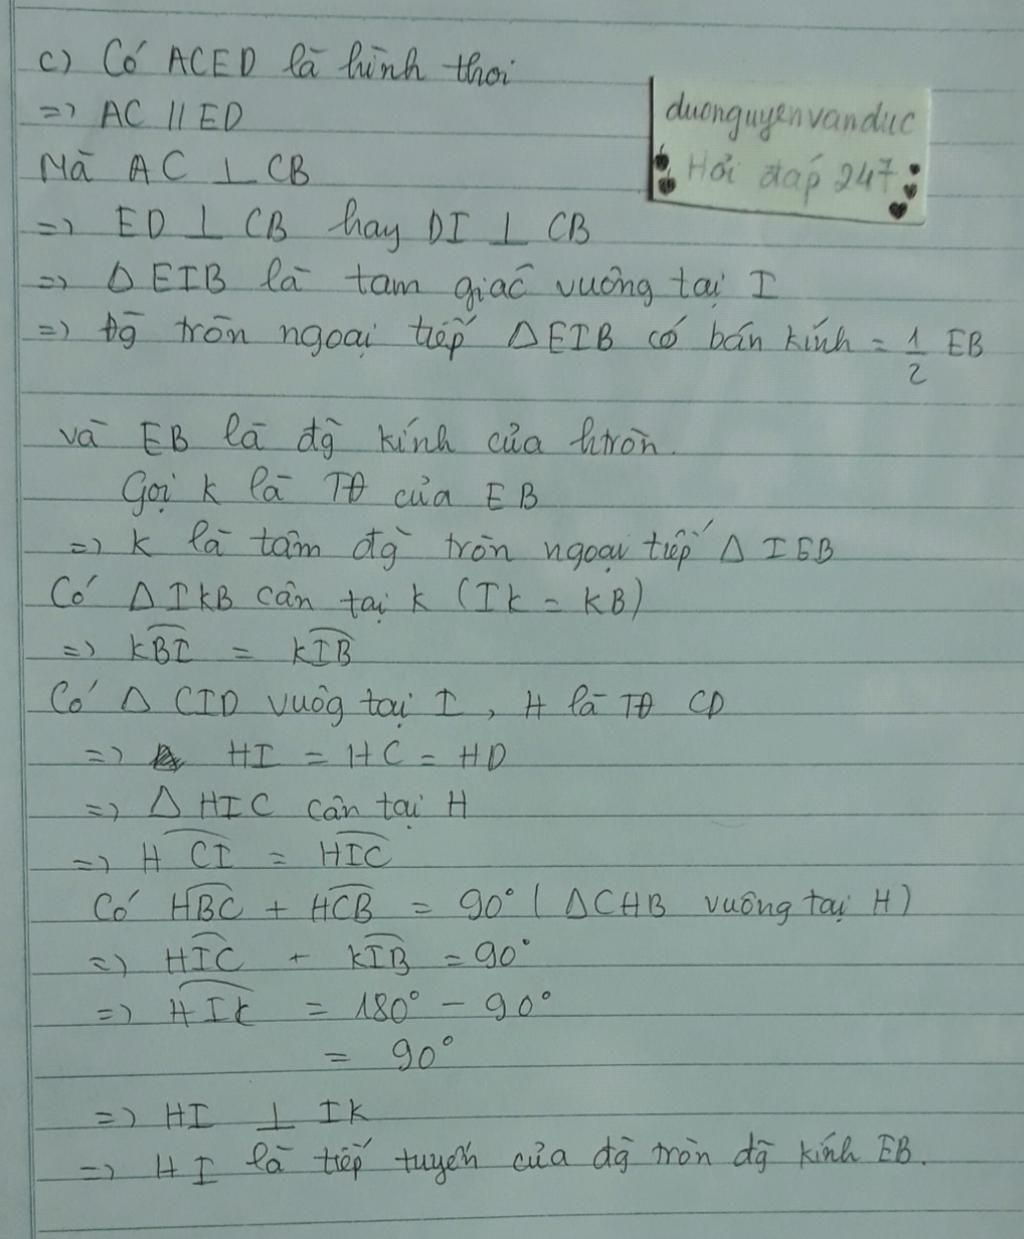 c) Có ACED là hình thoi
=> AC // ED
duonguyenvanduc
Hỏi đáp 247
Mà AC ⊥ CB
=> ED ⊥ CB hay DI ⊥ CB
=> Δ EIB là tam giác vuông tại I
=> đg tròn ngoại tiếp Δ EIB có bán kính = 1/2 EB
và EB là đg kính của htròn.
Gọi K là TĐ của EB
=> K là tâm đg tròn ngoại tiếp Δ IEB
Có Δ IKB cân tại K (IK = KB)
=> KBI = KIB
Có Δ CID vuôg tại I, H là TĐ CD
=> HI = HC = HD
=> Δ HIC cân tại H
=> HCI = HIC
Có HBC + HCB = 90° ( ΔCHB vuông tại H)
=> HIC + KIB = 90°
=> HIK = 180° - 90°
= 90°
=> HI ⊥ IK
=> HI là tiếp tuyến của đg tròn đg kính EB.